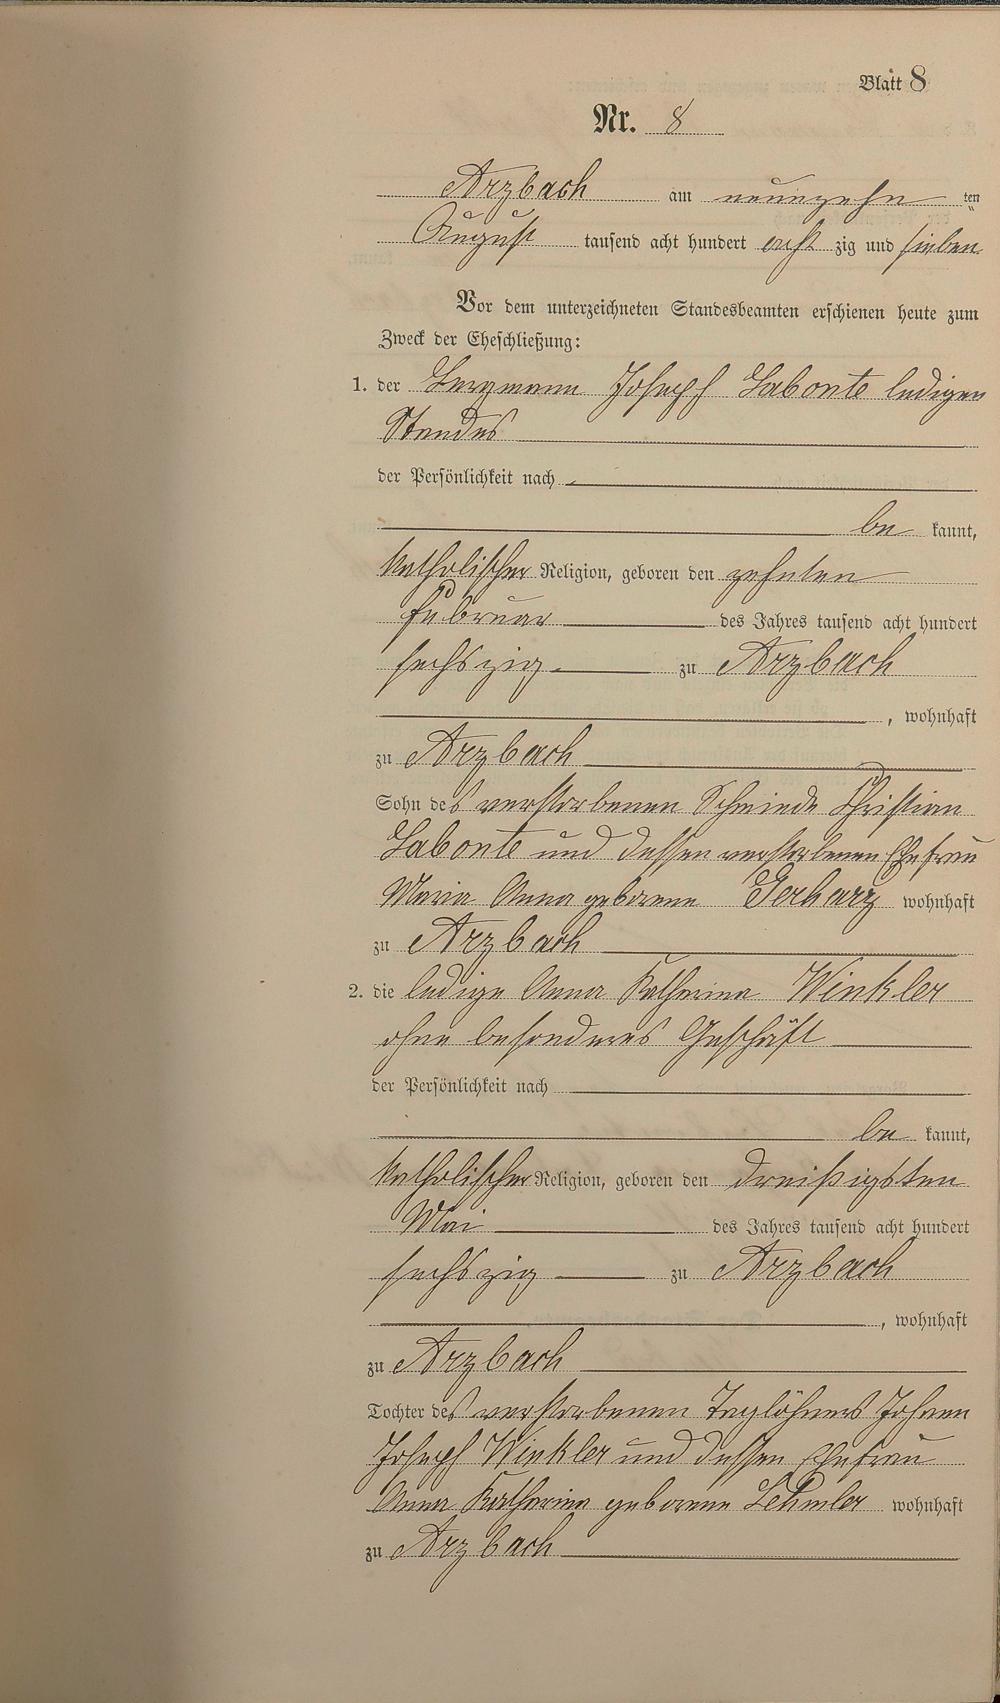 Blatt 8
Nr. 8
Arzbach am neunzehn ten
August tausend acht hundert acht zig und sieben
Vor dem unterzeichneten Standesbeamten erschienen heute zum
Zweck der Eheschließung:
1. der Bergmann Joseph Labonte ledigen
Standes
der Persönlichkeit nach
be kannt,
katholischer Religion, geboren den zehnten
Februar des Jahres tausend acht hundert
sechszig zu Arzbach
, wohnhaft
zu Arzbach
Sohn des verstorbenen Schmieds Christian
Labonte und dessen verstorbenen Ehefrau
Maria Anna geborene Gerharz wohnhaft
zu Arzbach
2. die ledige Anna Katharina Winkler
ohne besonderes Geschäft
der Persönlichkeit nach
be kannt,
katholischer Religion, geboren den dreißigsten
Mai des Jahres tausend acht hundert
sechszig zu Arzbach
, wohnhaft
zu Arzbach
Tochter des verstorbenen Taglöhners Johann
Joseph Winkler und dessen Ehefrau
Anna Katharina geborene wohnhaft
zu Arzbach